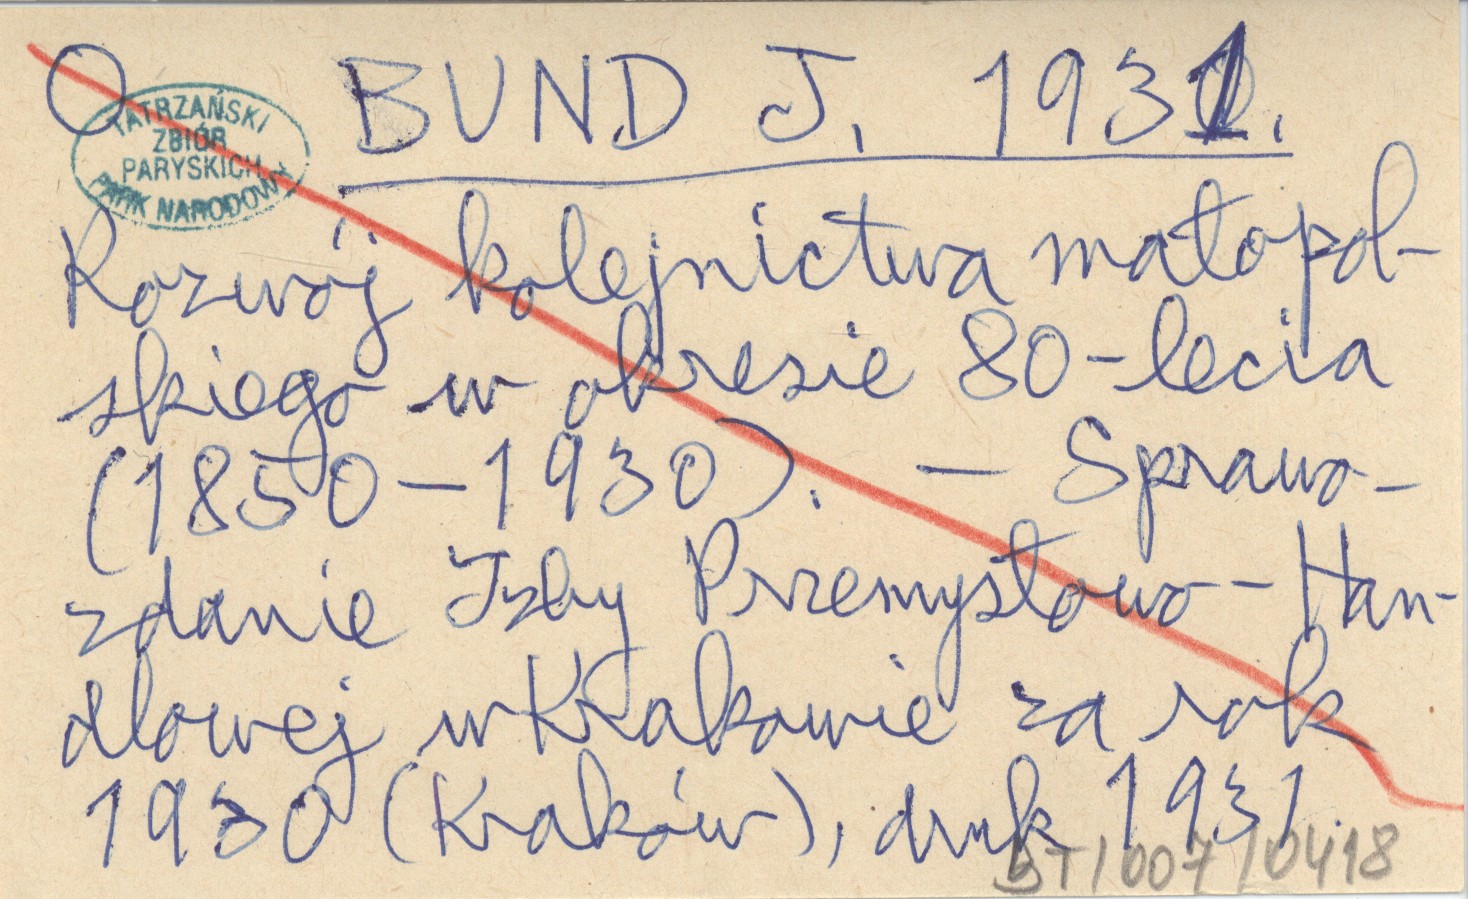 O BUND J. 1931.
TATRZAŃSKI
ZBIÓR
PARYSKICH
PARK NARODOWY
Rozwój kolejnictwa małopol-
skiego w okresie 80-lecia
(1850-1930). — Sprawo-
zdanie Izby Przemysłowo-Han-
dlowej w Krakowie za rok
1930 (Kraków), druk 1931.
BT/007/0418